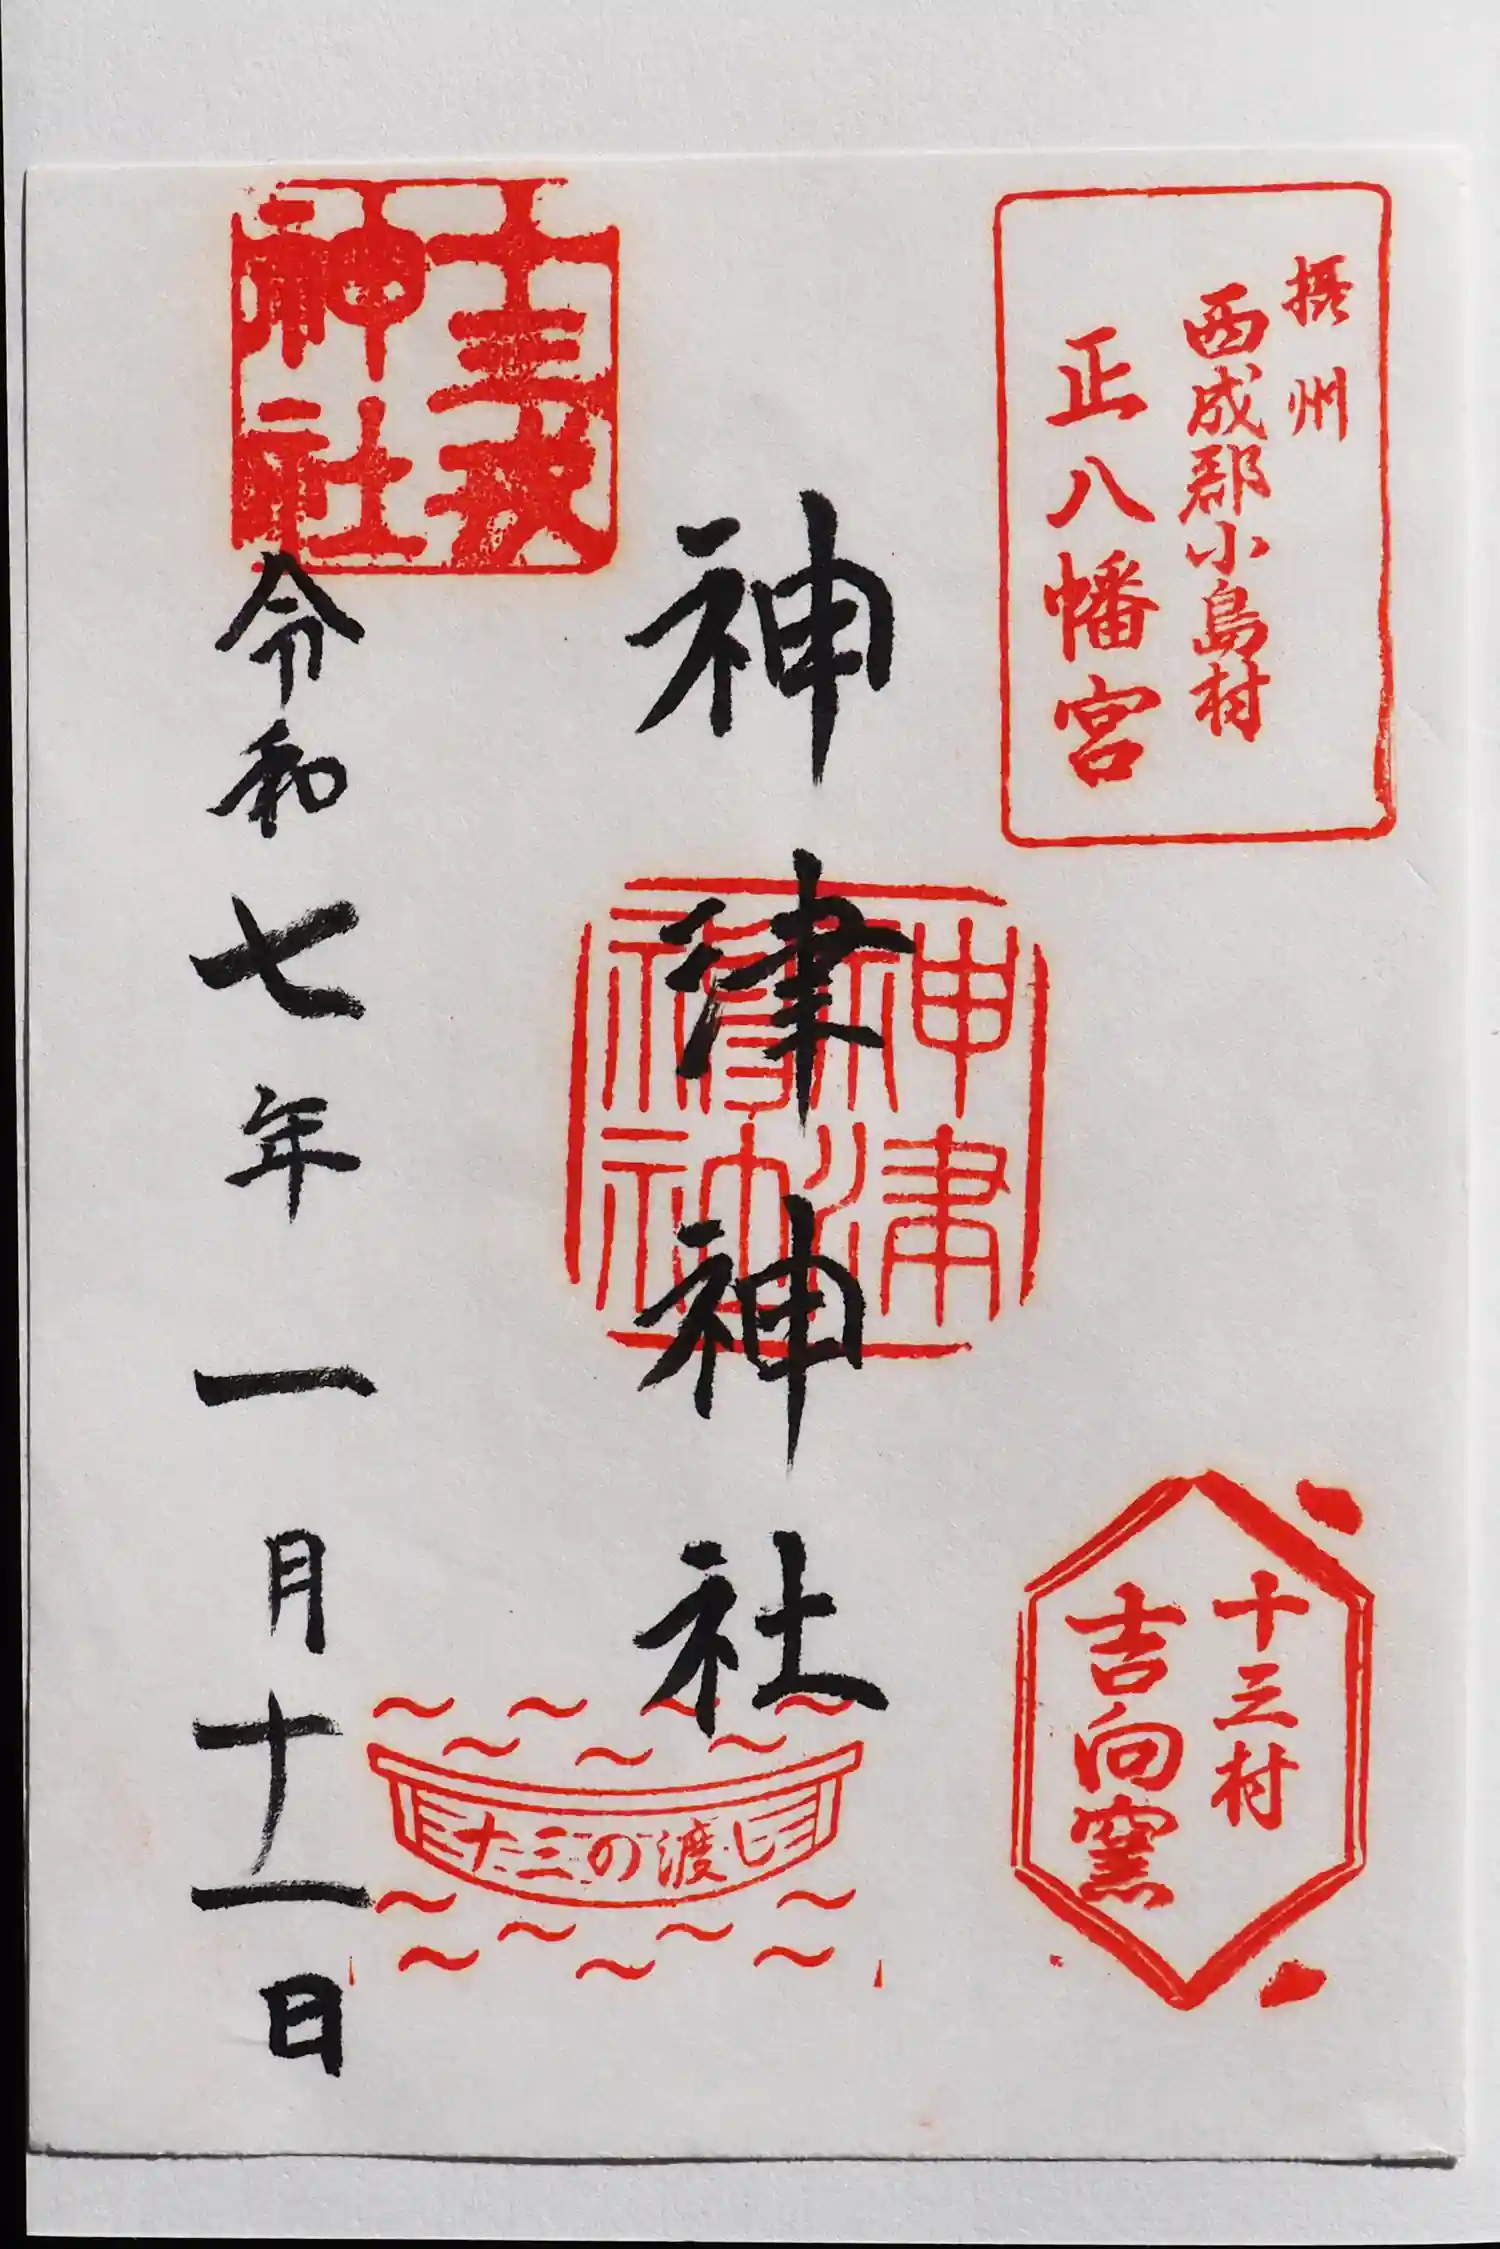 摂州
西成郡小島村
正八幡宮
十三村
吉向窯
神津神社
神津神社
十三戎
神社
令和七年一月十一日
十三の渡し